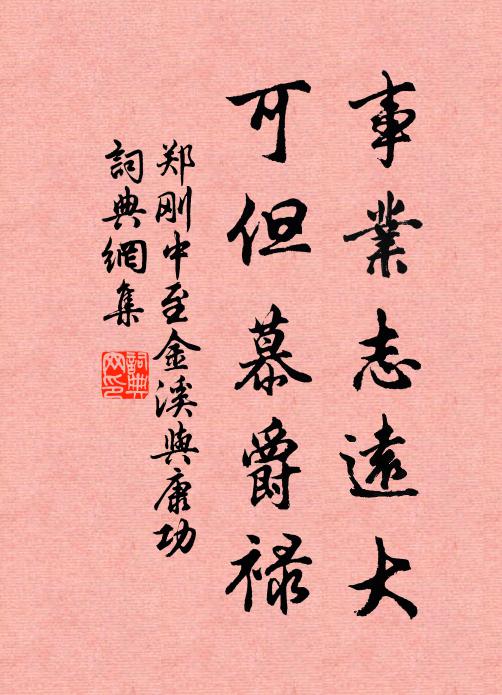 事業志遠大
可但慕爵禄
郑刚中至金溪與康功
詞典網集
詞典網印